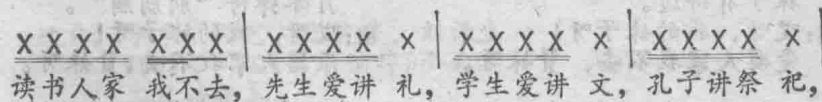 X X X X X X X | X X X X X | X X X X X | X X X X X
读书人家 我不去，先生爱讲 礼，学生爱讲 文，孔子讲祭 祀，